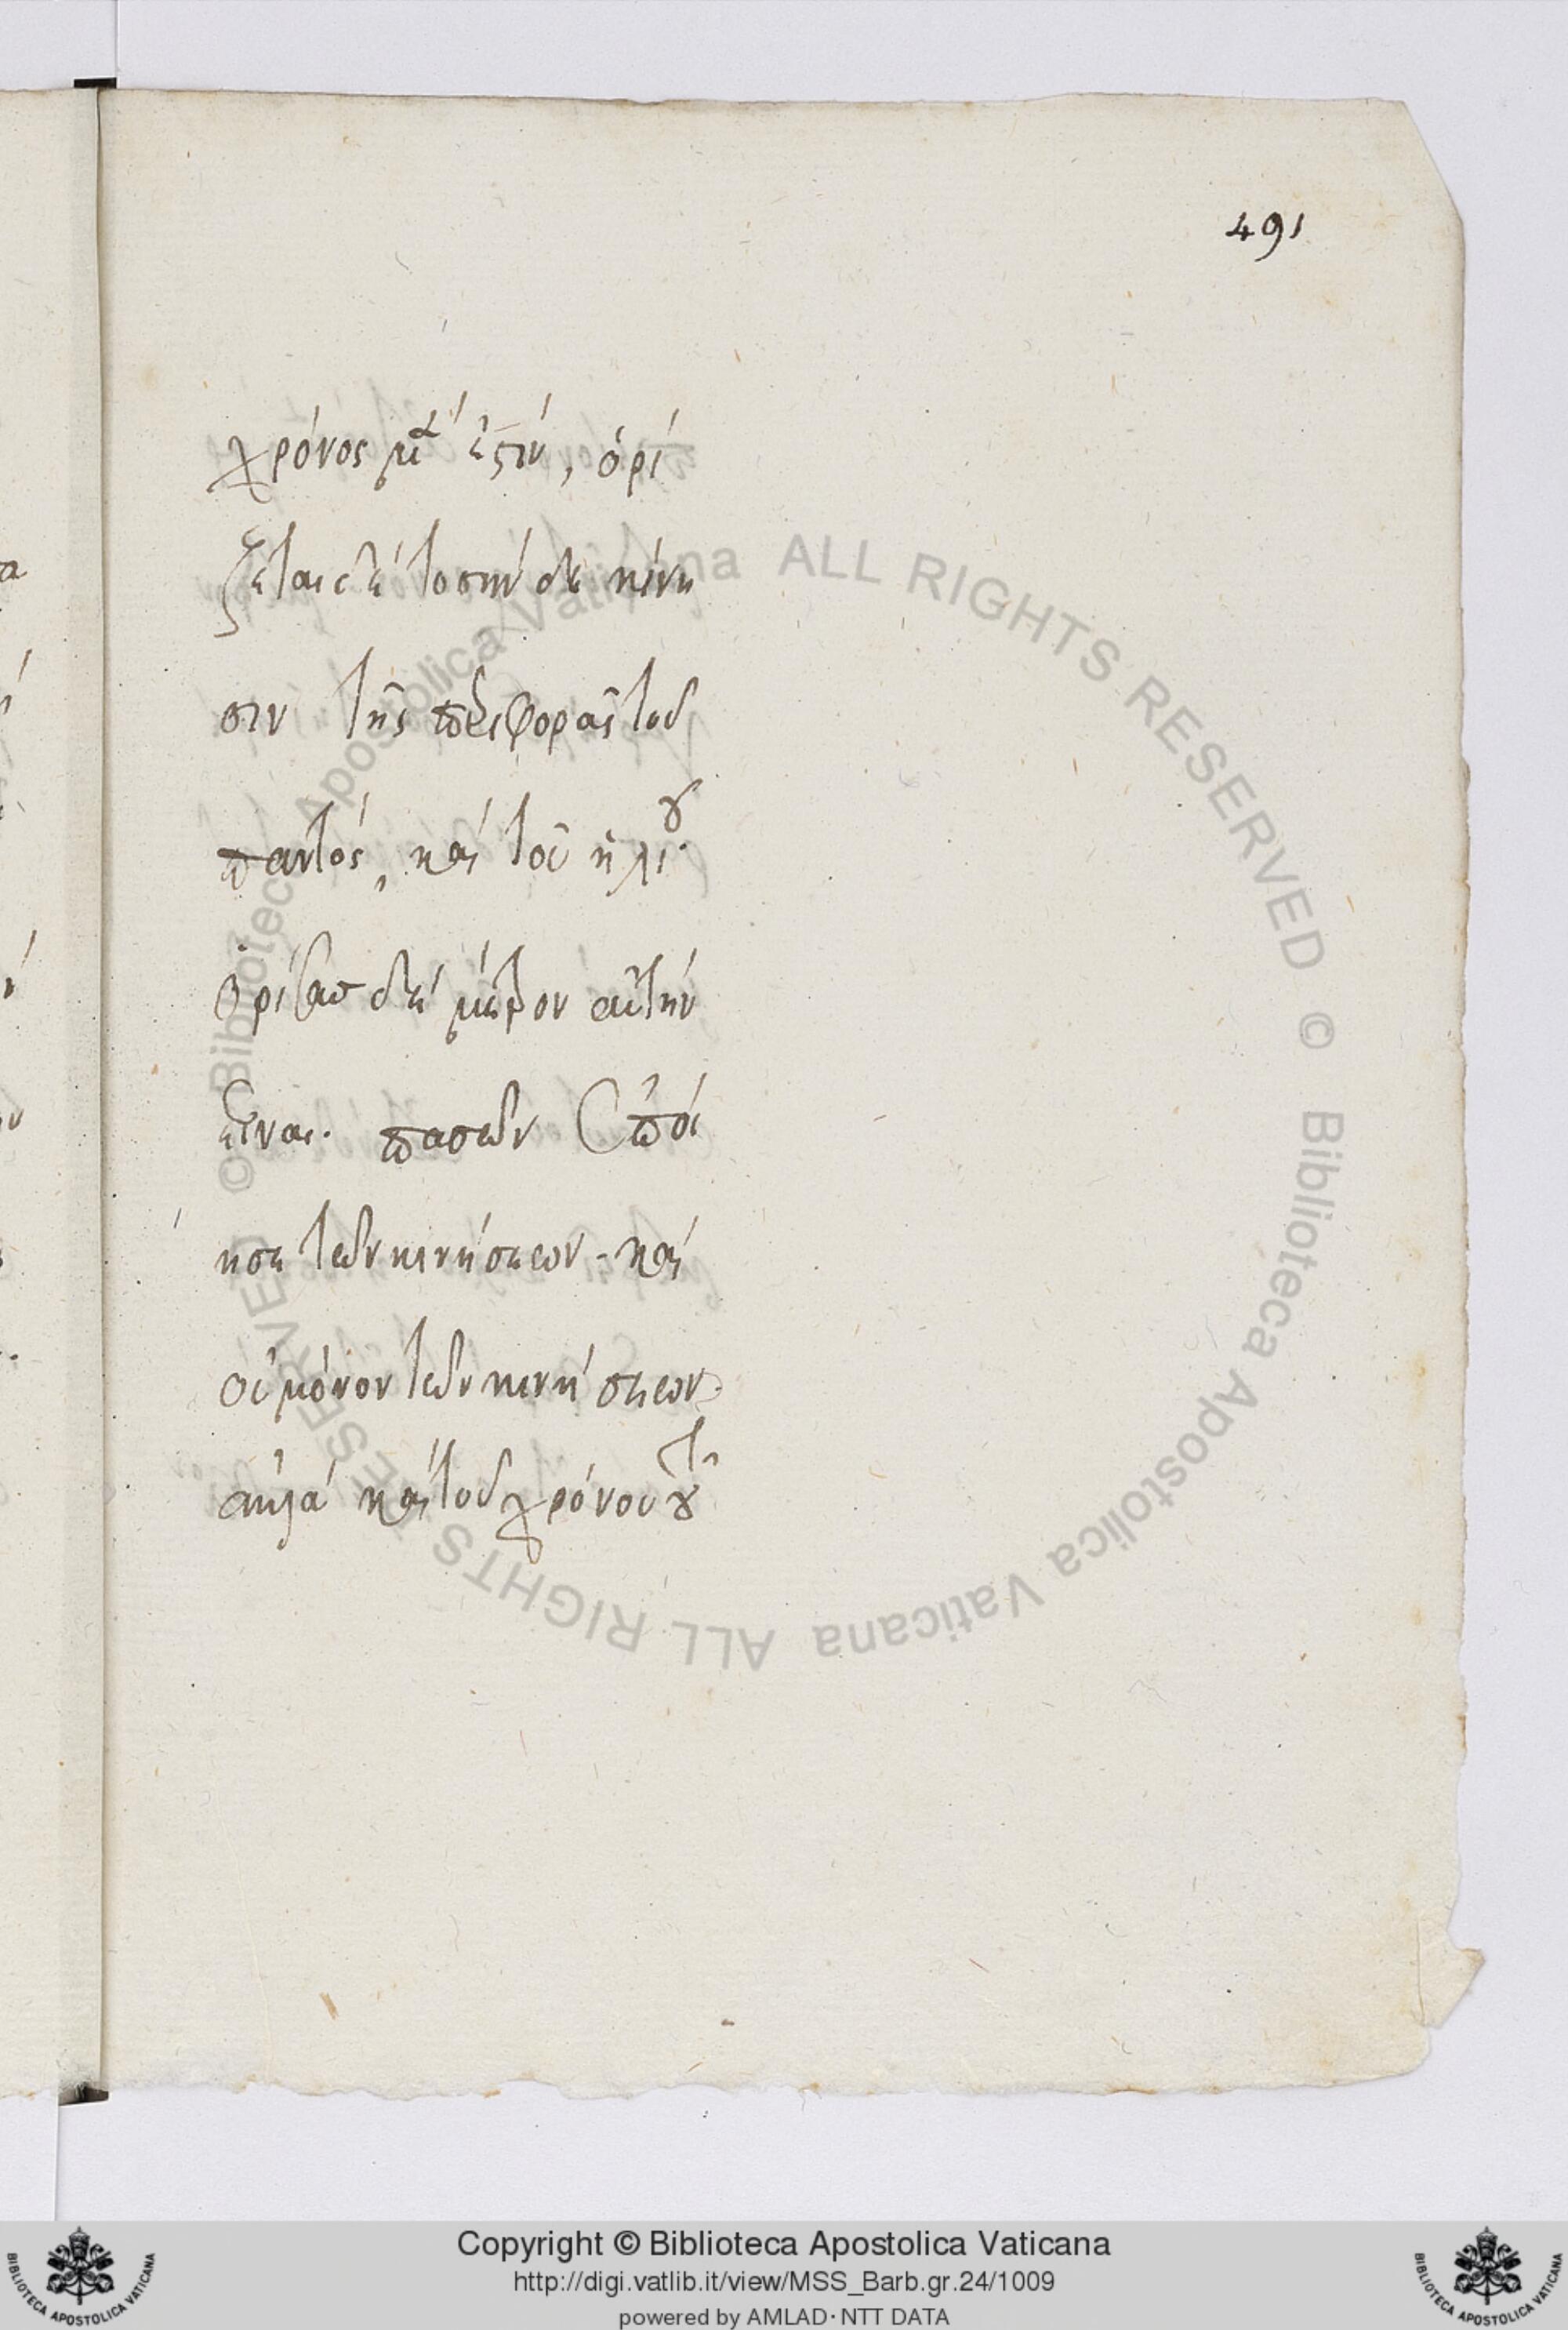 491
χρόνος μ^α ἐστίν, ὁρί
ζεται δὲ τοσήνδε κίνη
σιν τῆς περιφορᾶς τοῦ
παντός, καὶ τοῦ ἡλίου.
ὁρίσας δὲ μέτρον αὐτὴν
εἶναι. πασῶν ἐποί
ησε τῶν κινήσεων. καὶ
οὐ μόνον τῶν κινήσεων.
ἀλλὰ καὶ τοῦ χρόνου
© Biblioteca Apostolica Vaticana ALL RIGHTS RESERVED © Biblioteca Apostolica Vaticana ALL RIGHTS RESERVED
Copyright © Biblioteca Apostolica Vaticana
http://digi.vatlib.it/view/MSS_Barb.gr.24/1009
powered by AMLAD·NTT DATA
BIBLIOTECA APOSTOLICA VATICANA
BIBLIOTECA APOSTOLICA VATICANA